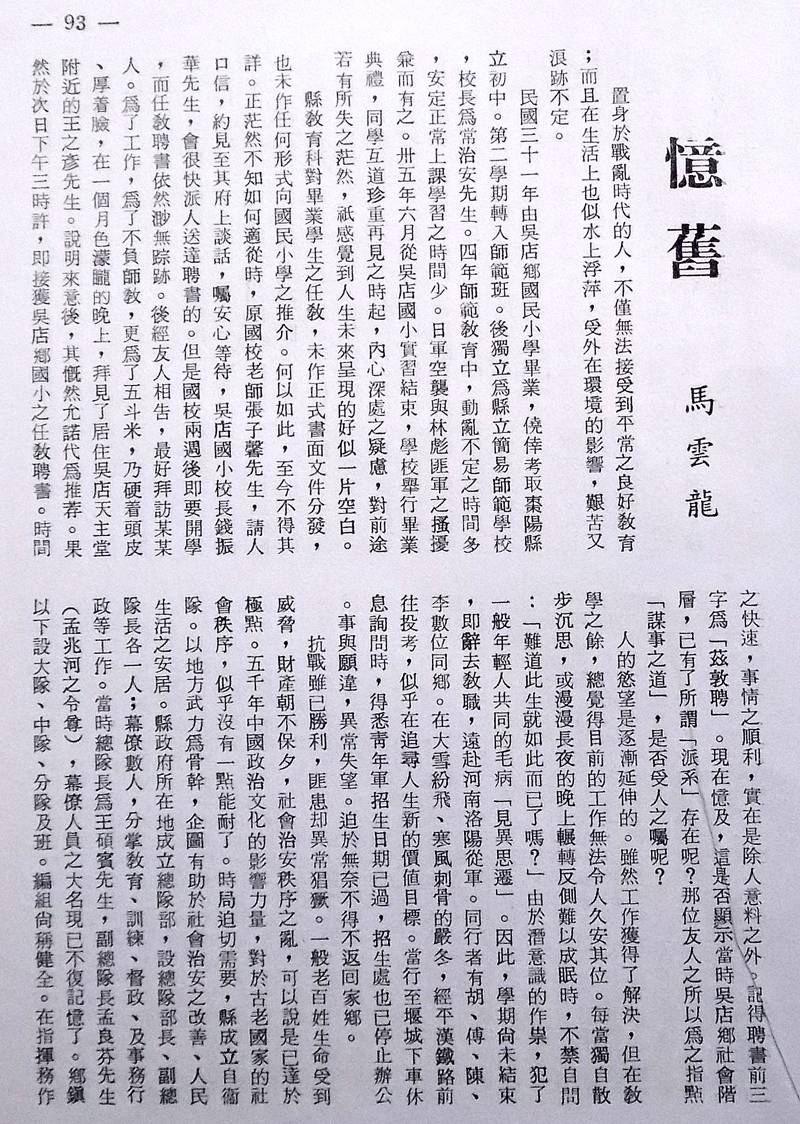 — 93 —
憶舊
馬雲龍
置身於戰亂時代的人，不僅無法接受到平常之良好教育
；而且在生活上也似水上浮萍，受外在環境的影響，艱苦又
浪跡不定。
民國三十一年由吳店鄉國民小學畢業，僥倖考取棗陽縣
立初中。第二學期轉入師範班。後獨立爲縣立簡易師範學校
，校長爲常治安先生。四年師範教育中，動亂不定之時間多
，安定正常上課學習之時間少。日軍空襲與林彪匪軍之搔擾
兼而有之。卅五年六月從吳店國小實習結束，學校舉行畢業
典禮，同學互道珍重再見之時起，內心深處之疑慮，對前途
若有所失之茫然，祇感覺到人生未來呈現的好似一片空白。
縣教育科對畢業學生之任教，未作正式書面文件分發，
也未作任何形式向國民小學之推介。何以如此，至今不得其
詳。正茫然不知如何適從時，原國校老師張子馨先生，請人
口信，約見至其府上談話，囑安心等待，吳店國小校長錢振
華先生，會很快派人送達聘書的。但是國校兩週後即要開學
，而任教聘書依然渺無踪跡。後經友人相告，最好拜訪某某
人。爲了工作，爲了不負師教，更爲了五斗米，乃硬着頭皮
、厚着臉，在一個月色濛朧的晚上，拜見了居住吳店天主堂
附近的王之彥先生。說明來意後，其慨然允諾代爲推荐。果
然於次日下午三時許，即接獲吳店鄉國小之任教聘書。時間
之快速，事情之順利，實在是除人意料之外。記得聘書前三
字爲「茲敦聘」。現在憶及，這是否顯示當時吳店鄉社會階
層，已有了所謂「派系」存在呢？那位友人之所以爲之指點
「謀事之道」，是否受人之囑呢？
人的慾望是逐漸延伸的。雖然工作獲得了解決，但在教
學之餘，總覺得目前的工作無法令人久安其位。每當獨自散
步沉思，或漫漫長夜的晚上輾轉反側難以成眠時，不禁自問
：「難道此生就如此而已了嗎？」由於潛意識的作祟，犯了
一般年輕人共同的毛病「見異思遷」。因此，學期尚未結束
，即辭去教職，遠赴河南洛陽從軍。同行者有胡、傅、陳、
李數位同鄉。在大雪紛飛、寒風刺骨的嚴冬，經平漢鐵路前
往投考，似乎在追尋人生新的價值目標。當行至堰城下車休
息詢問時，得悉靑年軍招生日期已過，招生處也已停止辦公
。事與願違，異常失望。迫於無奈不得不返回家鄉。
抗戰雖已勝利，匪患却異常猖獗。一般老百姓生命受到
威脅，財產朝不保夕，社會治安秩序之亂，可以說是已達於
極點。五千年中國政治文化的影響力量，對於古老國家的社
會秩序，似乎沒有一點能耐了。時局迫切需要，縣成立自衞
隊。以地方武力爲骨幹，企圖有助於社會治安之改善、人民
生活之安居。縣政府所在地成立總隊部，設總隊部長、副總
隊長各一人；幕僚數人，分掌教育、訓練、督政、及事務行
政等工作。當時總隊長爲王碩賓先生，副總隊長孟良芬先生
（孟兆河之令尊），幕僚人員之大名現已不復記憶了。鄉鎭
以下設大隊、中隊、分隊及班。編組尚稱健全。在指揮務作